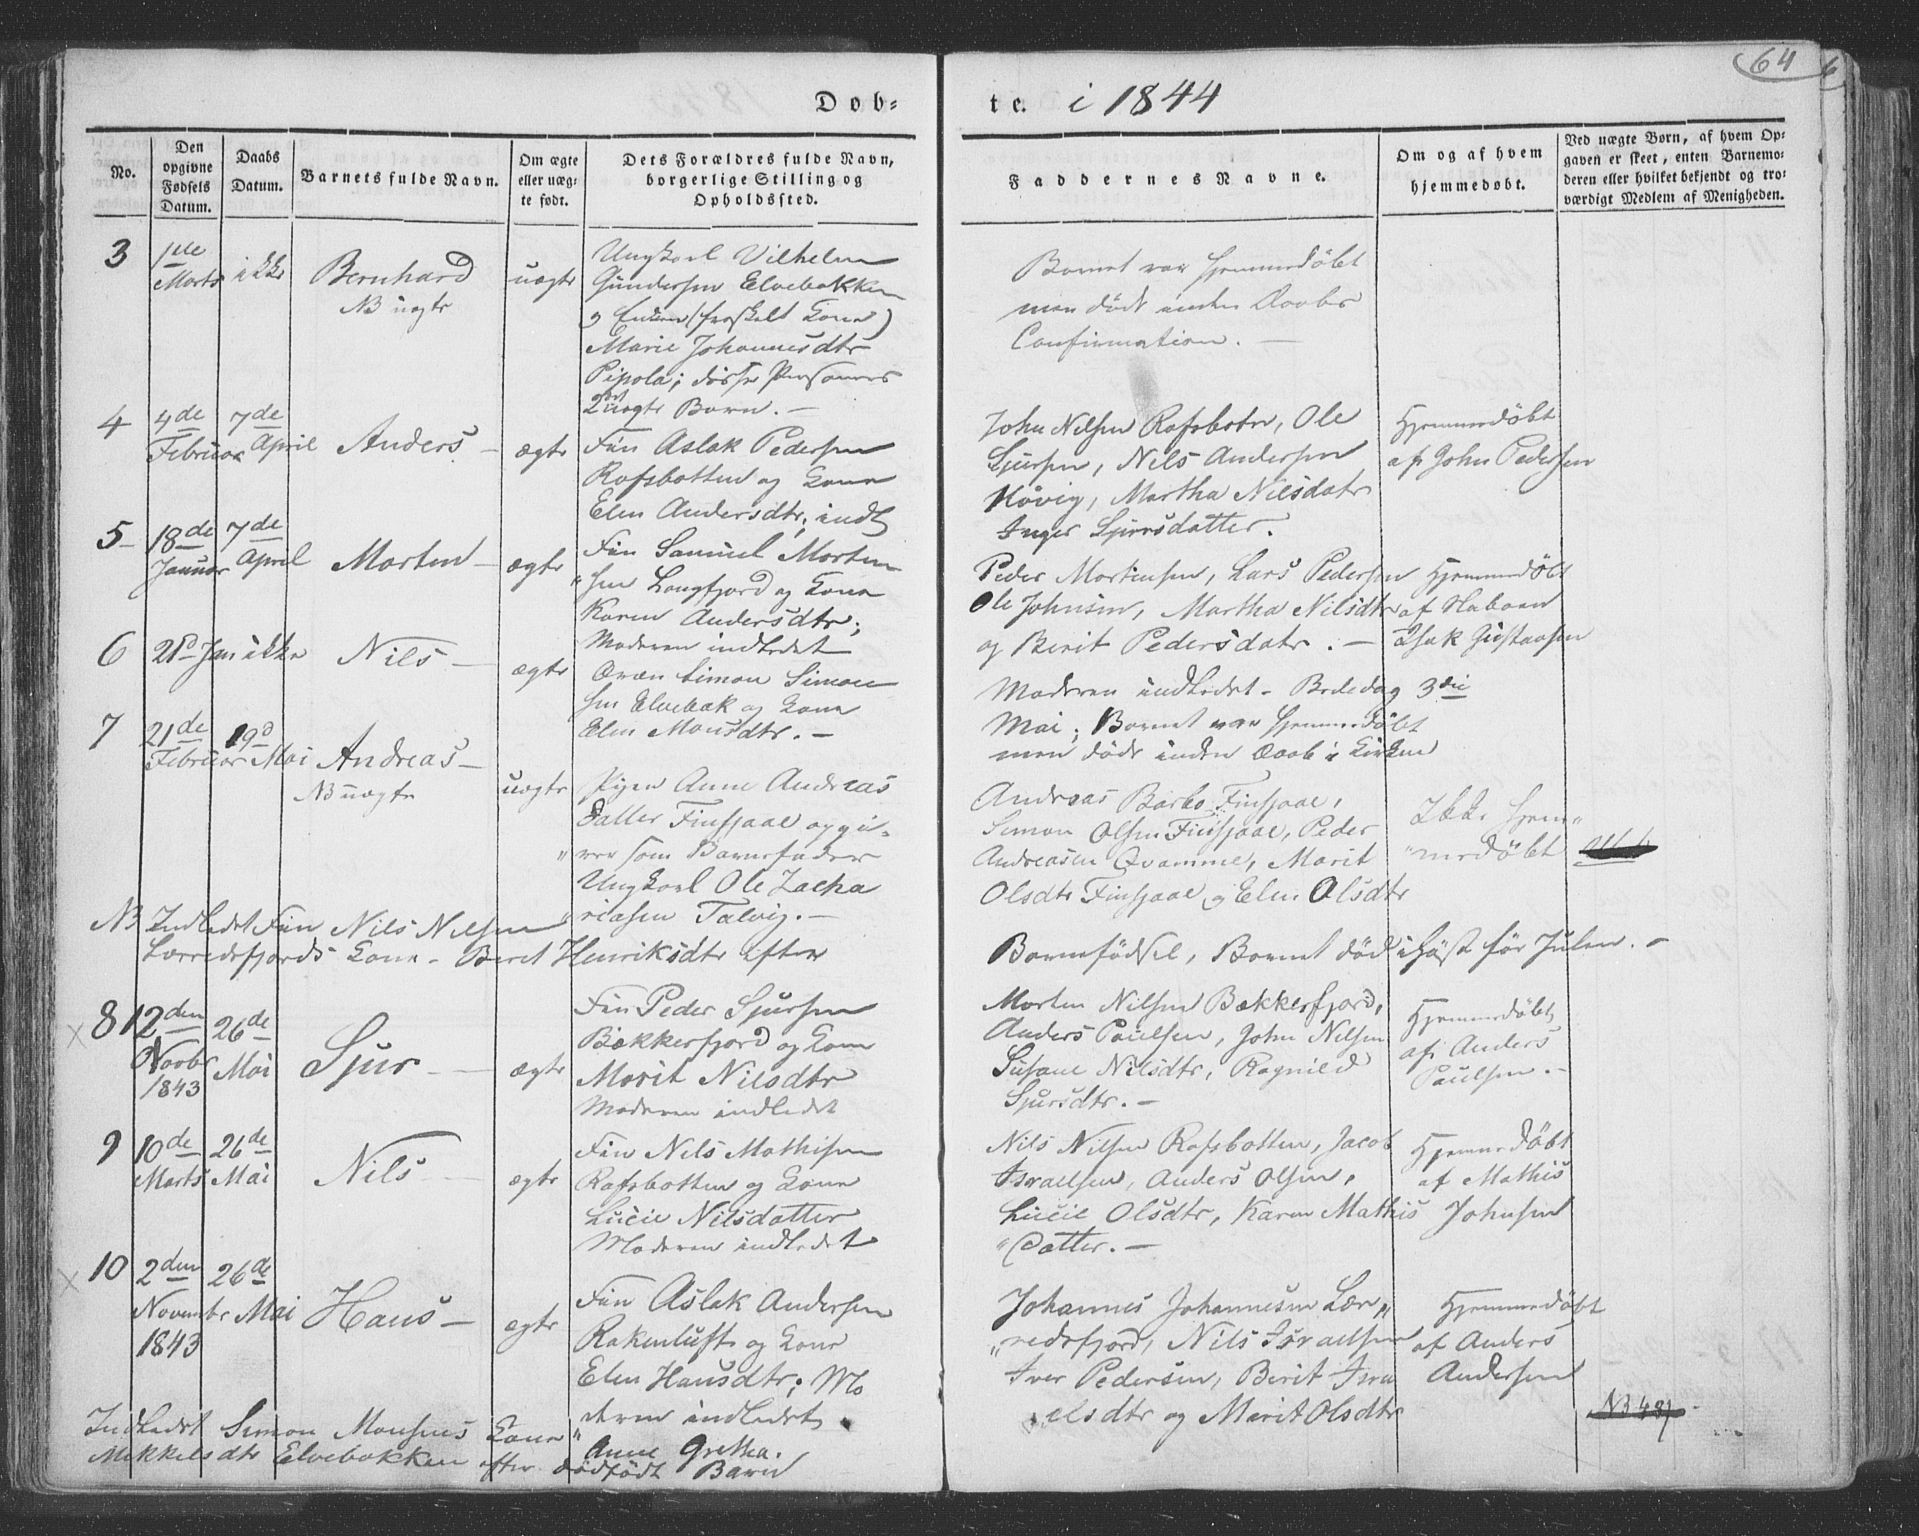 64
Døb=
te. i 1844
No.
Den opgivne Fødsels Datum.
Daabs Datum.
Barnets fulde Navn.
Om ægte eller uæg- te født.
Dets Forældres fulde Navn, borgerlige Stilling og Opholdssted.
Faddernes Navne.
Om og af hvem hjemmedøbt.
Ved uægte Børn, af hvem Op- gaven er skeet, enten Barnemo- deren eller hvilket bekjendt og tro- værdigt Medlem af Menigheden.
3
1ste
Marts
ikke
Bernhard
NB uægte
uægte
Ungkarl Vilhelm
Gundersen Elvebakken
og (fraskilt Kone)
Marie Johannesdtr
Pipola; disse Personers
2det uægte Barn. —
Barnet var hjemmedøbt
men døde inden Daabs
Confirmation. —
4
4de
Februar
7de
April
Anders —
ægte
Fin Aslak Pedersen
Rafsbotten og Kone
Elen Andersdtr; indl
John Nilsen Rafsbotn, Ole
Sjursen, Nils Andersen
Kåvig, Martha Nilsdatr
Inger Sjursdatter.
Hjemmedøbt
af John Pedersen
5 —
18de
Januar
7de
April
Morten —
ægte
Fin Samuel Morten
"sen Langfjord og Kone
Karen Andersdtr;
Moderen indledet
Peder Mortensen, Lars Pedersen
Ole Johnsen, Martha Nilsdtr
og Berit Pedersdatr. —
Hjemmedøbt
af Naboen
Isak Gustavsen
6
21d Jan
ikke
Nils —
ægte
Qvæn Simon Simon
sen Elvebak og Kone
Elen Monsdtr. —
Moderen indledet — Bededag 3die
Mai; Barnet var hjemmedøbt
men døde inden Daab i Kirken
7
21de
Februar
19d
Mai
Andreas —
NB uægte
uægte
Pigen Anne Andreas
datter Finsjaae opgi-
"ver som Barnefader
Ungkarl Ole Zacha
"riasen Talvig. —
Andreas Barbo Finsjaae,
Simon Olsen Finsjaae, Peder
Andreasen Qvamme, Marit
Olsdtr Finsjaae og Elen Olsdtr
Ikke hjem"
"medøbt
NB Indledet Fin Nils Nilsen
Lærredsfjords Kone — Beret Henriksdtr efter
Barnefødsel, Barnet død i Høst før Julen. —
8
12den
Novbr
1843
26de
Mai
Sjur —
ægte
Fin Peder Sjursen
Bækkerfjord og Kone
Marit Nilsdtr
Moderen indledet
Morten Nilsen Bækkerfjord,
Anders Paulsen, John Nilsen
Susane Nilsdtr, Ragnild
Sjursdtr. —
Hjemmedøbt
af Anders
Paulsen. —
9
10de
Marts
26de
Mai
Nils —
ægte
Fin Nils Mathisen
Rafsbotten og Kone
Lucie Nilsdatter
Moderen indledet
Nils Nilsen Rafsbotten, Jacob
Israelsen, Anders Olsen,
Lucie Olsdtr, Karen Mathis
"datter. —
Hjemmedøbt
af Mathis
Johnsen
10
2den
Novembr
1843
26de
Mai
Hans —
ægte
Fin Aslak Andersen
Rakenluft og Kone
Elen Hansdtr; Mo
deren indledet
Johannes Johannesen Lær"
"redsfjord, Nils Israelsen
Iver Pedersen, Birit Isra
elsdtr og Marit Olsdtr
Hjemmedøbt
af Anders
Andersen
Indledet Simon Monsens Kone" Anne Grethe
Mikkelsdtr Elvebakken efter dødfødt Barn